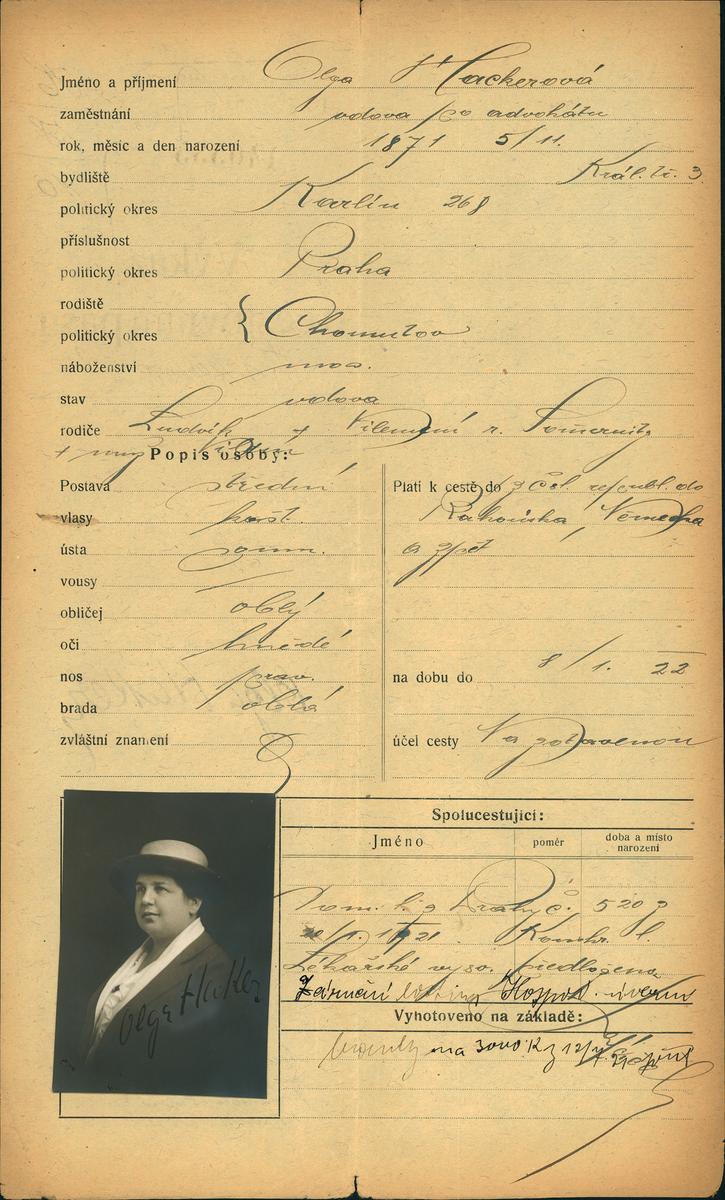 Jméno a příjmení Olga Hackerová
zaměstnání vdova po advokátu
rok, měsíc a den narození 1871 5/11.
bydliště Král. tř. 3
politický okres Karlín 268
příslušnost
politický okres Praha
rodiště
politický okres Chomutov
náboženství mos.
stav vdova
rodiče Ludvík + Vilemína r.
Popis osoby:
Postava střední
vlasy kašt.
ústa soum.
vousy /
obličej oblý
oči hnědé
nos prav.
brada oblá
zvláštní znamení
Platí k cestě do z Čsl. republ. do
Rakouska, Německa
a zpět
na dobu do 8/1. 22
účel cesty Na zotavenou
Spolucestující:
Jméno poměr doba a místo narození
Dom. l. z Prahy č. 5209
1921.
Lékařské vysv. předloženo
Vyhotoveno na základě:
na 3000 K z 12/
Olga Hacker